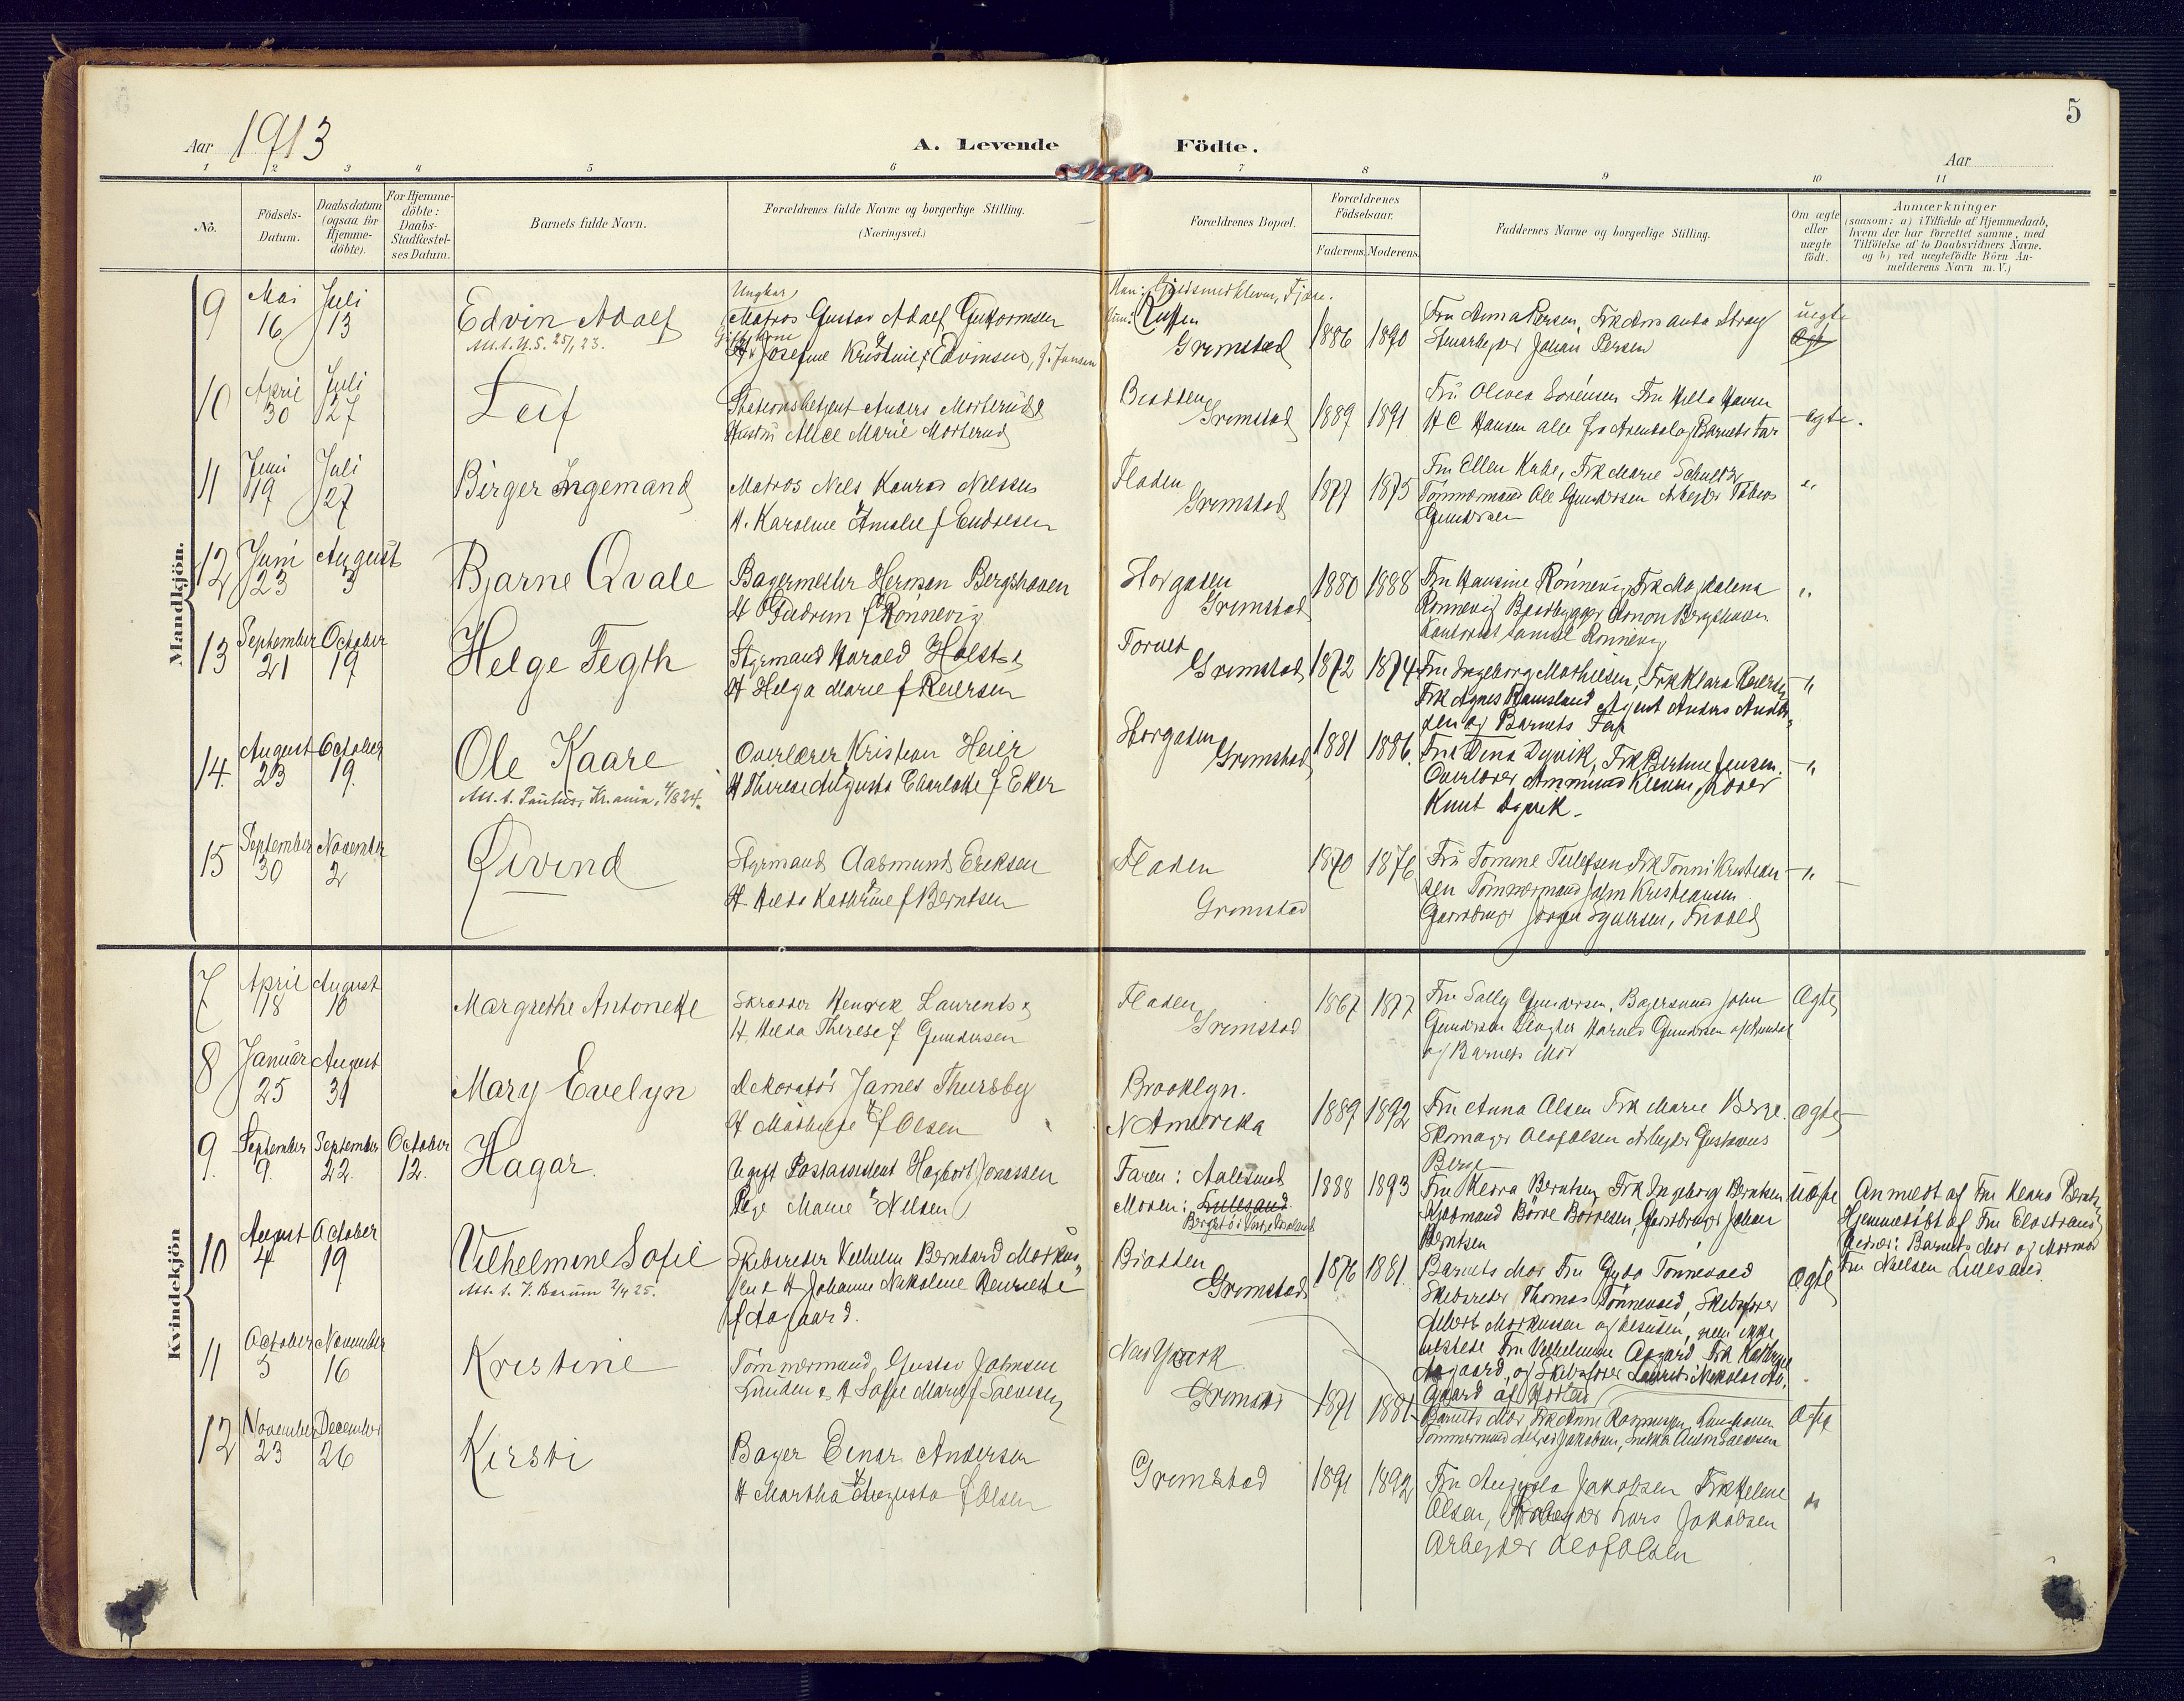 5
Aar 1913
A. Levende Födte.
Aar
1 2 3 4 5 6 7 8 9 10 11
No.
Födsels-
Datum.
Daabsdatum
(ogsaa for
Hjemme-
döbte).
For Hjemme-
döbte:
Daabs-
Stadfæstel-
ses Datum.
Barnets fulde Navn.
Forældrenes fulde Navne og borgerlige Stilling.
(Næringsvei.)
Forældrenes Bopæl.
Forældrenes
Födselsaar.
Faderens. Moderens.
Faddernes Navne og borgerlige Stilling.
Om ægte
eller
uægte
födt.
Anmærkninger
(saasom: a) i Tilfælde af Hjemmedaab,
hvem der har forrettet samme, med
Tilföielse af to Daabsvidners Navne.
og b) ved uægtefödte Börn An-
melderens Navn m. V.)
Mandkjön.
9 Mai 16 Juli 13
Edvin Adolf
Att. t. U.S. 25/1 23.
Ungkar
Matros Gustav Adolf Guttormsen
Josefine Kristine Edvinsen, f. Jensen
Grimstad
1886 1890
Johan Persen
uegte
10 April 30 Juli 27
Leif
Stationsbetjent Anders Morterud
Hustru Alice Marie Morterud
Bratten
Grimstad
1889 1891
Fru Olivia Sörensen Fru Hilda Hansen
H C Hansen alle fra Arendal og Barnets Far
ægte.
11 Juni 19 Juli 27
Birger Ingemand
Matros Nils Konrad Nilsen
H. Karoline Amalie f Endresen
Fladen
Grimstad
1877 1875
Fru Ellen Kabe, Frk Marie Schultz
Tömmermand Ole Gundersen Arbeider Tobias
Gundersen
"
12 Juni 23 August 3
Bjarne Qvale
Bagermester Herman Bergshaven
H Gudrun f Rönnevig
Storgaten
Grimstad
1880 1888
Fru Hansine Rönnevig, Frk Magdalena
Rönnevig Baadbygger Simon Bergshaven
Kontorist Samuel Rönnevig
"
13 September 21 October 19
Helge Fegth
Styrmand Harald Holst
H Helga Marie f Reiersen
Torvet
Grimstad
1872 1874
Fru Ingeborg Mathiesen, Frk Klara Reiersen
Frk Agnes Ramsland Agent Anders Ander-
sen og Barnets Far
"
14. August 23 October 19.
Ole Kaare
Att. t. Paulus, Kr.ania, 4/8 24.
Overlærer Kristian Heier
H Therese Augusta Charlotte f Eker
Storgaten
Grimstad
1881 1886.
Fru Dina Dyvik, Frk Bertine Jensen.
Overlærer Ammund Kleven, Lærer
Knut Dyvik.
"
15 September 30 November 2
Øivind
Styrmand Aasmund Eriksen
H Hilda Kathrine f Berntsen
Fladen
Grimstad
1870 1876
Fru Tomine Tellefsen Frk Tonni Kristian-
sen Tömmermand John Kristiansen
Gaardbruger Jörgen Syvertsen, Frivold
"
Kvindekjön
7 April 18 August 10
Margrethe Antonette
Skrædder Henrik Laurents
H. Hilda Therese f Gundersen
Fladen
Grimstad
1867 1877
Fru Sally Gundersen. Bagersvend John
Gundersen Slagter Harald Gundersen af Arendal
og Barnets Mor
Ægte
8 Januar 25 August 31
Mary Evelyn
Dekoratör James Thursby
H Mathilde f Olsen
Brooklyn.
N Amerika
1889 1892
Fru Anna Olsen Frk Marie Berge.
Skomager Olaf Olsen Arbeider Gustavus
Berge
ægte
9. September 9. September 22. October 12.
Hagar.
Ugift Postassistent Hagbart Jonassen
Pige Marie Nilsen
Faren: Aalesund
Moren: Lillesand
1888 1893
Fru Klara Berntsen, Frk Ingeborg Berntsen
Kjöbmand Börre Börresen, Gaardbruger Johan
Berntsen
uægte
Anmeldt af Fru Klara Berntsen
Hjemmedöbt af Fru Elostrand
Vidner: Barnets Mor og Mormor
Fru Nielsen Lillesand.
10 August 4 October 19
Vilhelmine Sofie
Att. t. V. Bærum 2/4 25.
Skibsreder Vilhelm Bernhard Morkus-
sen & H Johanne Nikoline Henriette
f Aagaard.
Bratten
Grimstad
1876 1881.
Barnets Mor Fru Gyda Tönnevold
Skibsreder Thomas Tönnevold, Skibsförer
Albert Morkussen og desuden, men ikke
tilstede Fru Vilhelmine Aagaard Frk Kathrine
Aagaard, og Skibsförer Laurits Nikolai Aa-
gaard af Horten
Ægte
11 October 5 November 16
Kristine
Tömmermand Gustav Johnsen
Lunden & H Sofie Marie f Salvesen
New York
Grimstad
1871 1881
Tömmermand Alfred Jakobsen, Snekker Anton Salvesen
Ægte
12 November 23 December 26
Kirsti
Bager Einar Andersen
H Martha Augusta f Olsen
Grimstad
1891 1892
Fru Augusta Jakobsen Frk Helene
Olsen, Arbeider Lars Jakobsen
Arbeider Olaf Olsen
"